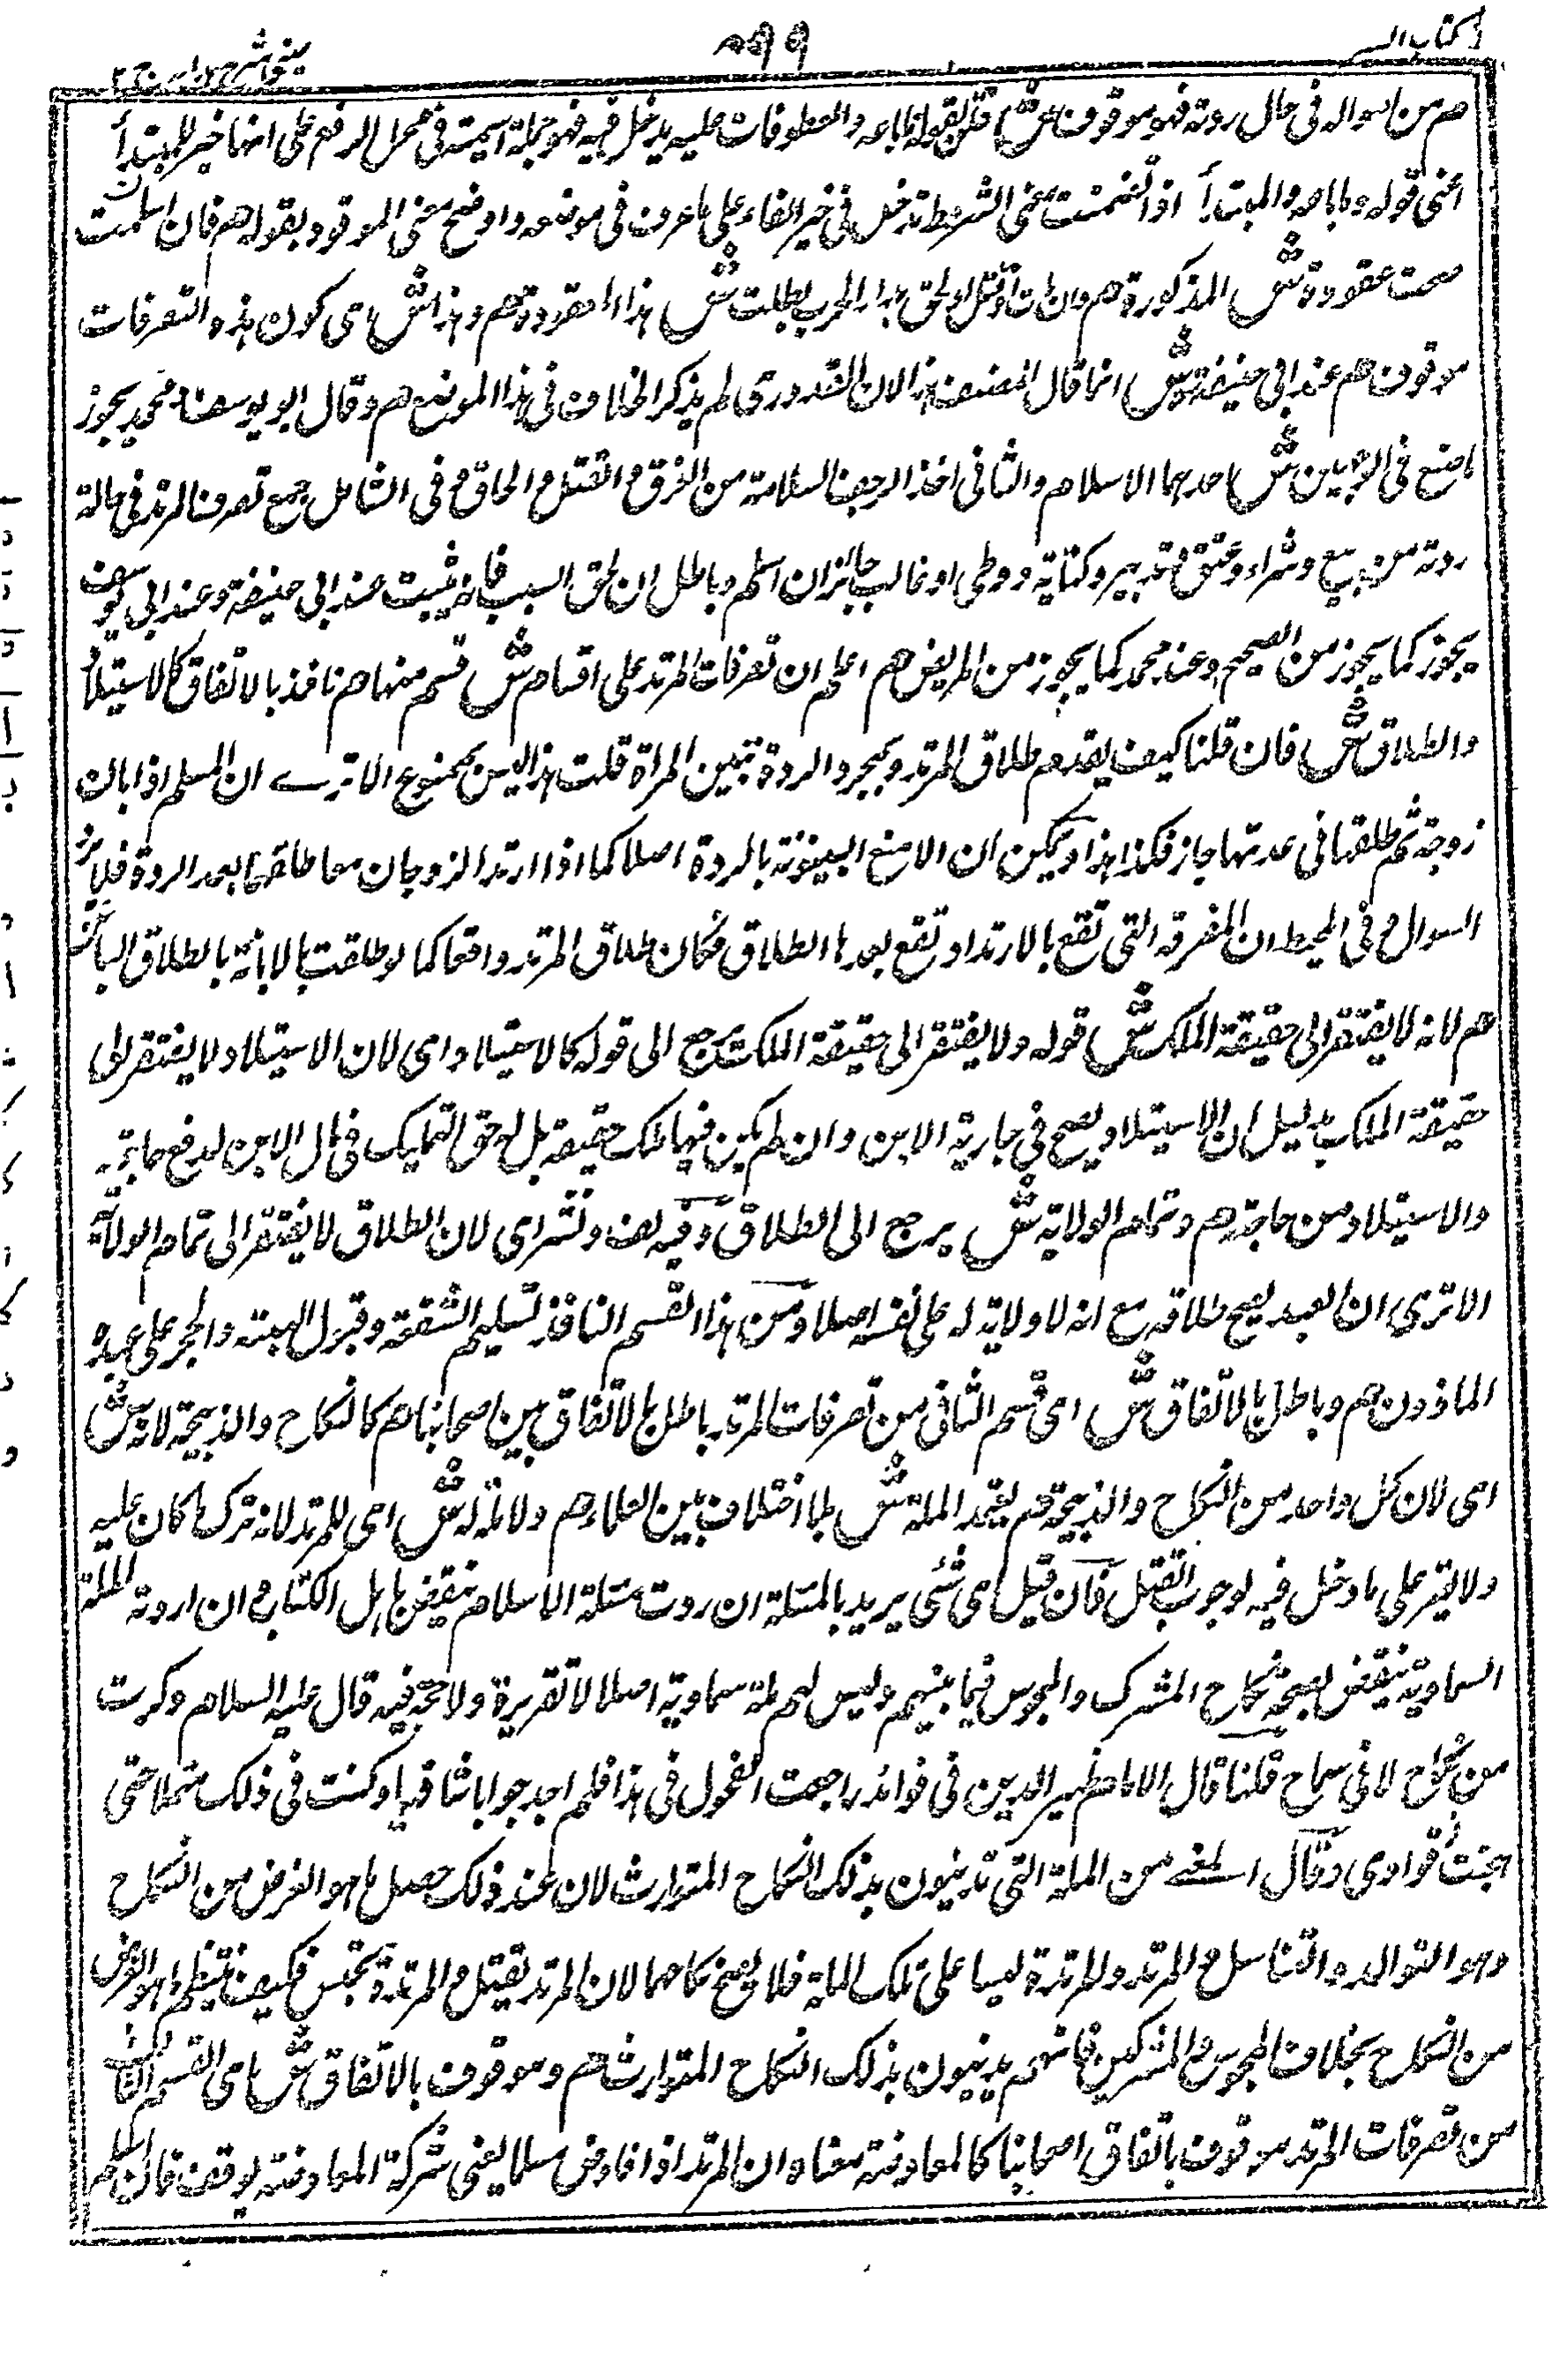 كتاب السير
عينى شرح هدايه ج ٢
م من امواله فى حال ردته فهو موقوف ش قوله باعه والمعطوفات عليه يدخل فيه فهو جملة اسمية فى محل الرفع على انها خبر المبتدأ
اعنى قوله وما باعه والمبتدأ اذا تضمنت معنى الشرط تدخل فى خبره الفاء على ما عرف فى موضعه واوضح معنى الموقوف بقوله م فان اسلم
صحت عقوده ش المذكورة م وان مات او قتل او لحق بدار الحرب بطلت ش هذا اى عقوده م وهذا ش اى كون هذه التصرفات
موقوف م عند ابى حنيفة ش انما قال المصنف هذا لان القدورى لم يذكر الخلاف فى هذا الموضع م وقال ابو يوسف ومحمد يجوز
ما صنع فى الوجهين ش احدهما الاسلام والثانى اخذ الوجهين السلامة من الغرق والقتل والحاق وفى الشامل جميع تصرف المرتد فى حالة
ردته من بيع وشراء وعتق وتدبير وكتابة ووطى جائز ان اسلم وباطل ان لحق السبب فانه يثبت عند ابى حنيفة وعند ابى يوسف
يجوز كما يجوز من الصحيح وعند محمد كما يجوز من المريض م اعلم ان تصرفات المرتد على اقسام ش قسم منها م نافذ بالاتفاق كالاستيلاد
والطلاق ش فان قلنا كيف يقع طلاق المرتد وبمجرد الردة تبين المرأة قلت هذا ليس بممنوع الا ترى ان المسلم اذا ابان
زوجته ثم طلقها فى عدتها جاز فكذا هذا ويمكن ان لا تقع البينونة بالردة اصلا كما اذا ارتد الزوجان معا طلقها بعد الردة فلا يرد
السوال وفى المحيط ان الفرقة التى تقع بالارتداد تقع بعدها الطلاق فكان طلاق المرتد واقعا كما لو طلقت بالابانة بالطلاق البائن
م لانه لا يفتقر الى حقيقة الملك ش قوله ولا يفتقر الى حقيقة الملك يرجع الى قوله كالاستيلاد اى لان الاستيلاد لا يفتقر الى
حقيقة الملك بدليل ان الاستيلاد يصح فى جارية الابن وان لم يكن فيها ملك حقيقة بل له حق التمليك فى مال الابن لدفع حاجته
والاستيلاد من حاجته م وتمام الولاية ش يرجع الى الطلاق وفيه لف ونشر اى لان الطلاق لا يفتقر الى تمام الولاية
الا ترى ان العبد يصح طلاقه مع انه لا ولاية له على نفسه اصلا ومن هذا القسم النافذ تسليم الشفعة وقبول الهبة والحجر على عبده
الماذون م وباطل بالاتفاق ش اى قسم الثانى من تصرفات المرتد باطل بالاتفاق بين اصحابنا م كالنكاح والذبيحة لانه ش
اى لان كل واحد من النكاح والذبيحة م يعتمد الملة ش بلا اختلاف بين العلماء م ولا ملة له ش اى للمرتد لانه ترك ما كان عليه
ولا يقر على ما دخل فيه لوجوب القتل فان قيل اى شئى يريد بالملة ان ردت ملة الاسلام ينقض باهل الكتاب وان اردت الملة
السماوية ينقض بصحة نكاح المشرك والمجوس فيما بينهم وليس لهم ملة سماوية اصلا لا تقريرة ولا حجة فيه قال عليه السلام ولدت
من نكاح لا فى سفاح قلنا قال الامام ظهير الدين فى فوائده راجعت الفحول فى هذا فلم اجد جوابا شافيا وكنت فى ذلك متململا حتى
هجت فوادى وقال المعنى من الملة التى تدينون بذلك النكاح المتوارث لان عند ذلك حصل ما هو الغرض من النكاح
وهو التوالد والتناسل والمرتد والمرتدة ليسا على تلك الملة فلا يصح نكاحهما لان المرتد يقتل والمرتدة تحبس فكيف ينتظم ما هو الغرض
من النكاح بخلاف المجوس والمشركين فانهم يدينون بذلك النكاح المتوارث م وموقوف بالاتفاق ش اى القسم الثالث
من تصرفات المرتد موقوف باتفاق اصحابنا كالمفاوضة معناه ان المرتد اذا فاوض مسلما يعنى شركة المفاوضة يوقف فان اسلم